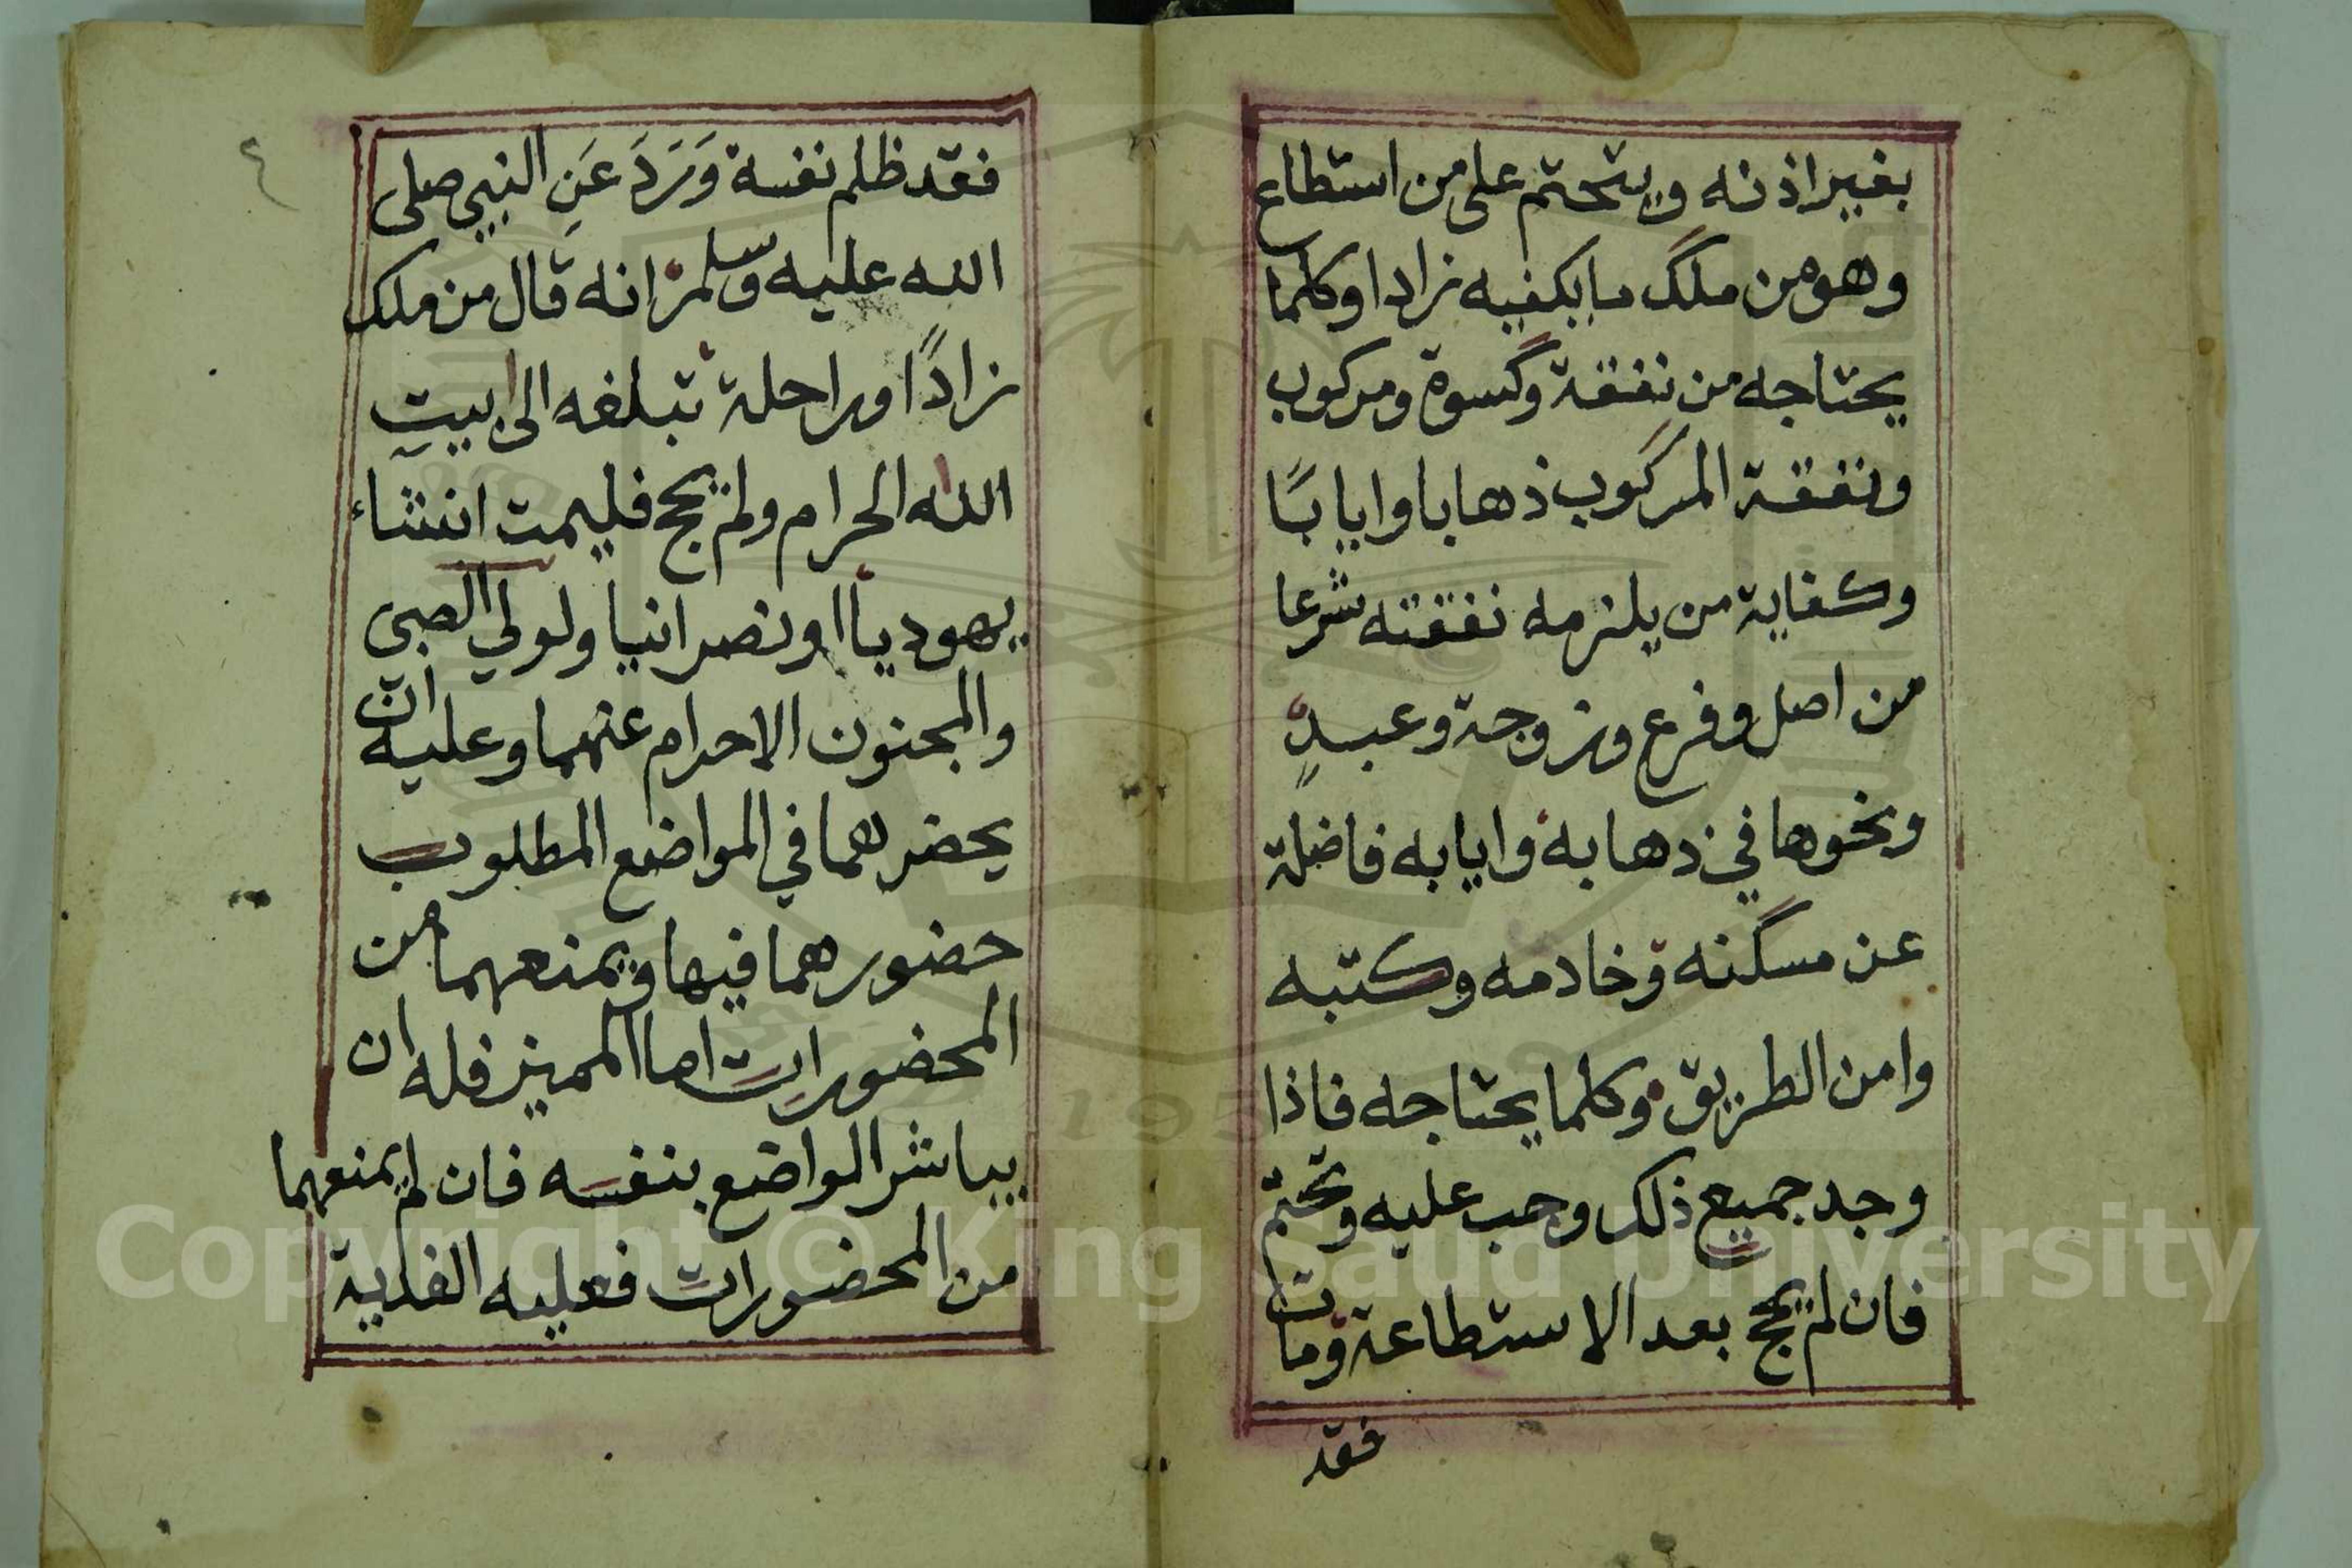 بغير اذنه ويتحتم على من استطاع
وهو من ملك ما يكفيه زادا وكلما
يحتاجه من نفقة وكسوة ومركوب
ونفقة المركوب ذهابا وايابًا
وكفاية من يلزمه نفقته شرعا
من اصل وفرع وزوجة وعبدٍ
ونحوها في ذهابه وايابه فاضلة
عن مسكنه وخادمه وكتبه
وامن الطريق وكلما يحتاجه فاذا
وجد جميع ذلك وجب عليه وتحتم
فان لم يحج بعد الاستطاعة ومات
فقد
٤
فقد ظلم نفسه وَرَدَ عَنِ النبي صلى
الله عليه وسلم انه قال من ملك
زادًا وراحلة تبلغه الى بيتِ
الله الحرام ولم يحج فليمت انشاء
يهوديا او نصرانيا ولولي الصبي
والمجنون الاحرام عنهما وعليه ان
يحضرهما في المواضع المطلوب
حضورهما فيها ويمنعهما من
المحضورات اما المميز فله ان
يباشر المواضع بنفسه فان لم يمنعهما
من المحضورات فعليه الفدية
Copyright © King Saud University
195